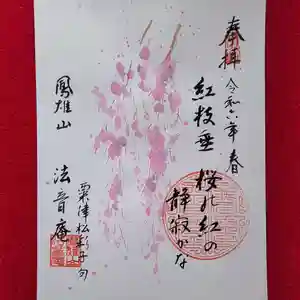 奉拝
令和六年春
紅枝垂
桜の紅の
静寂かな
粟津松彩子句
鳳雄山
法音庵